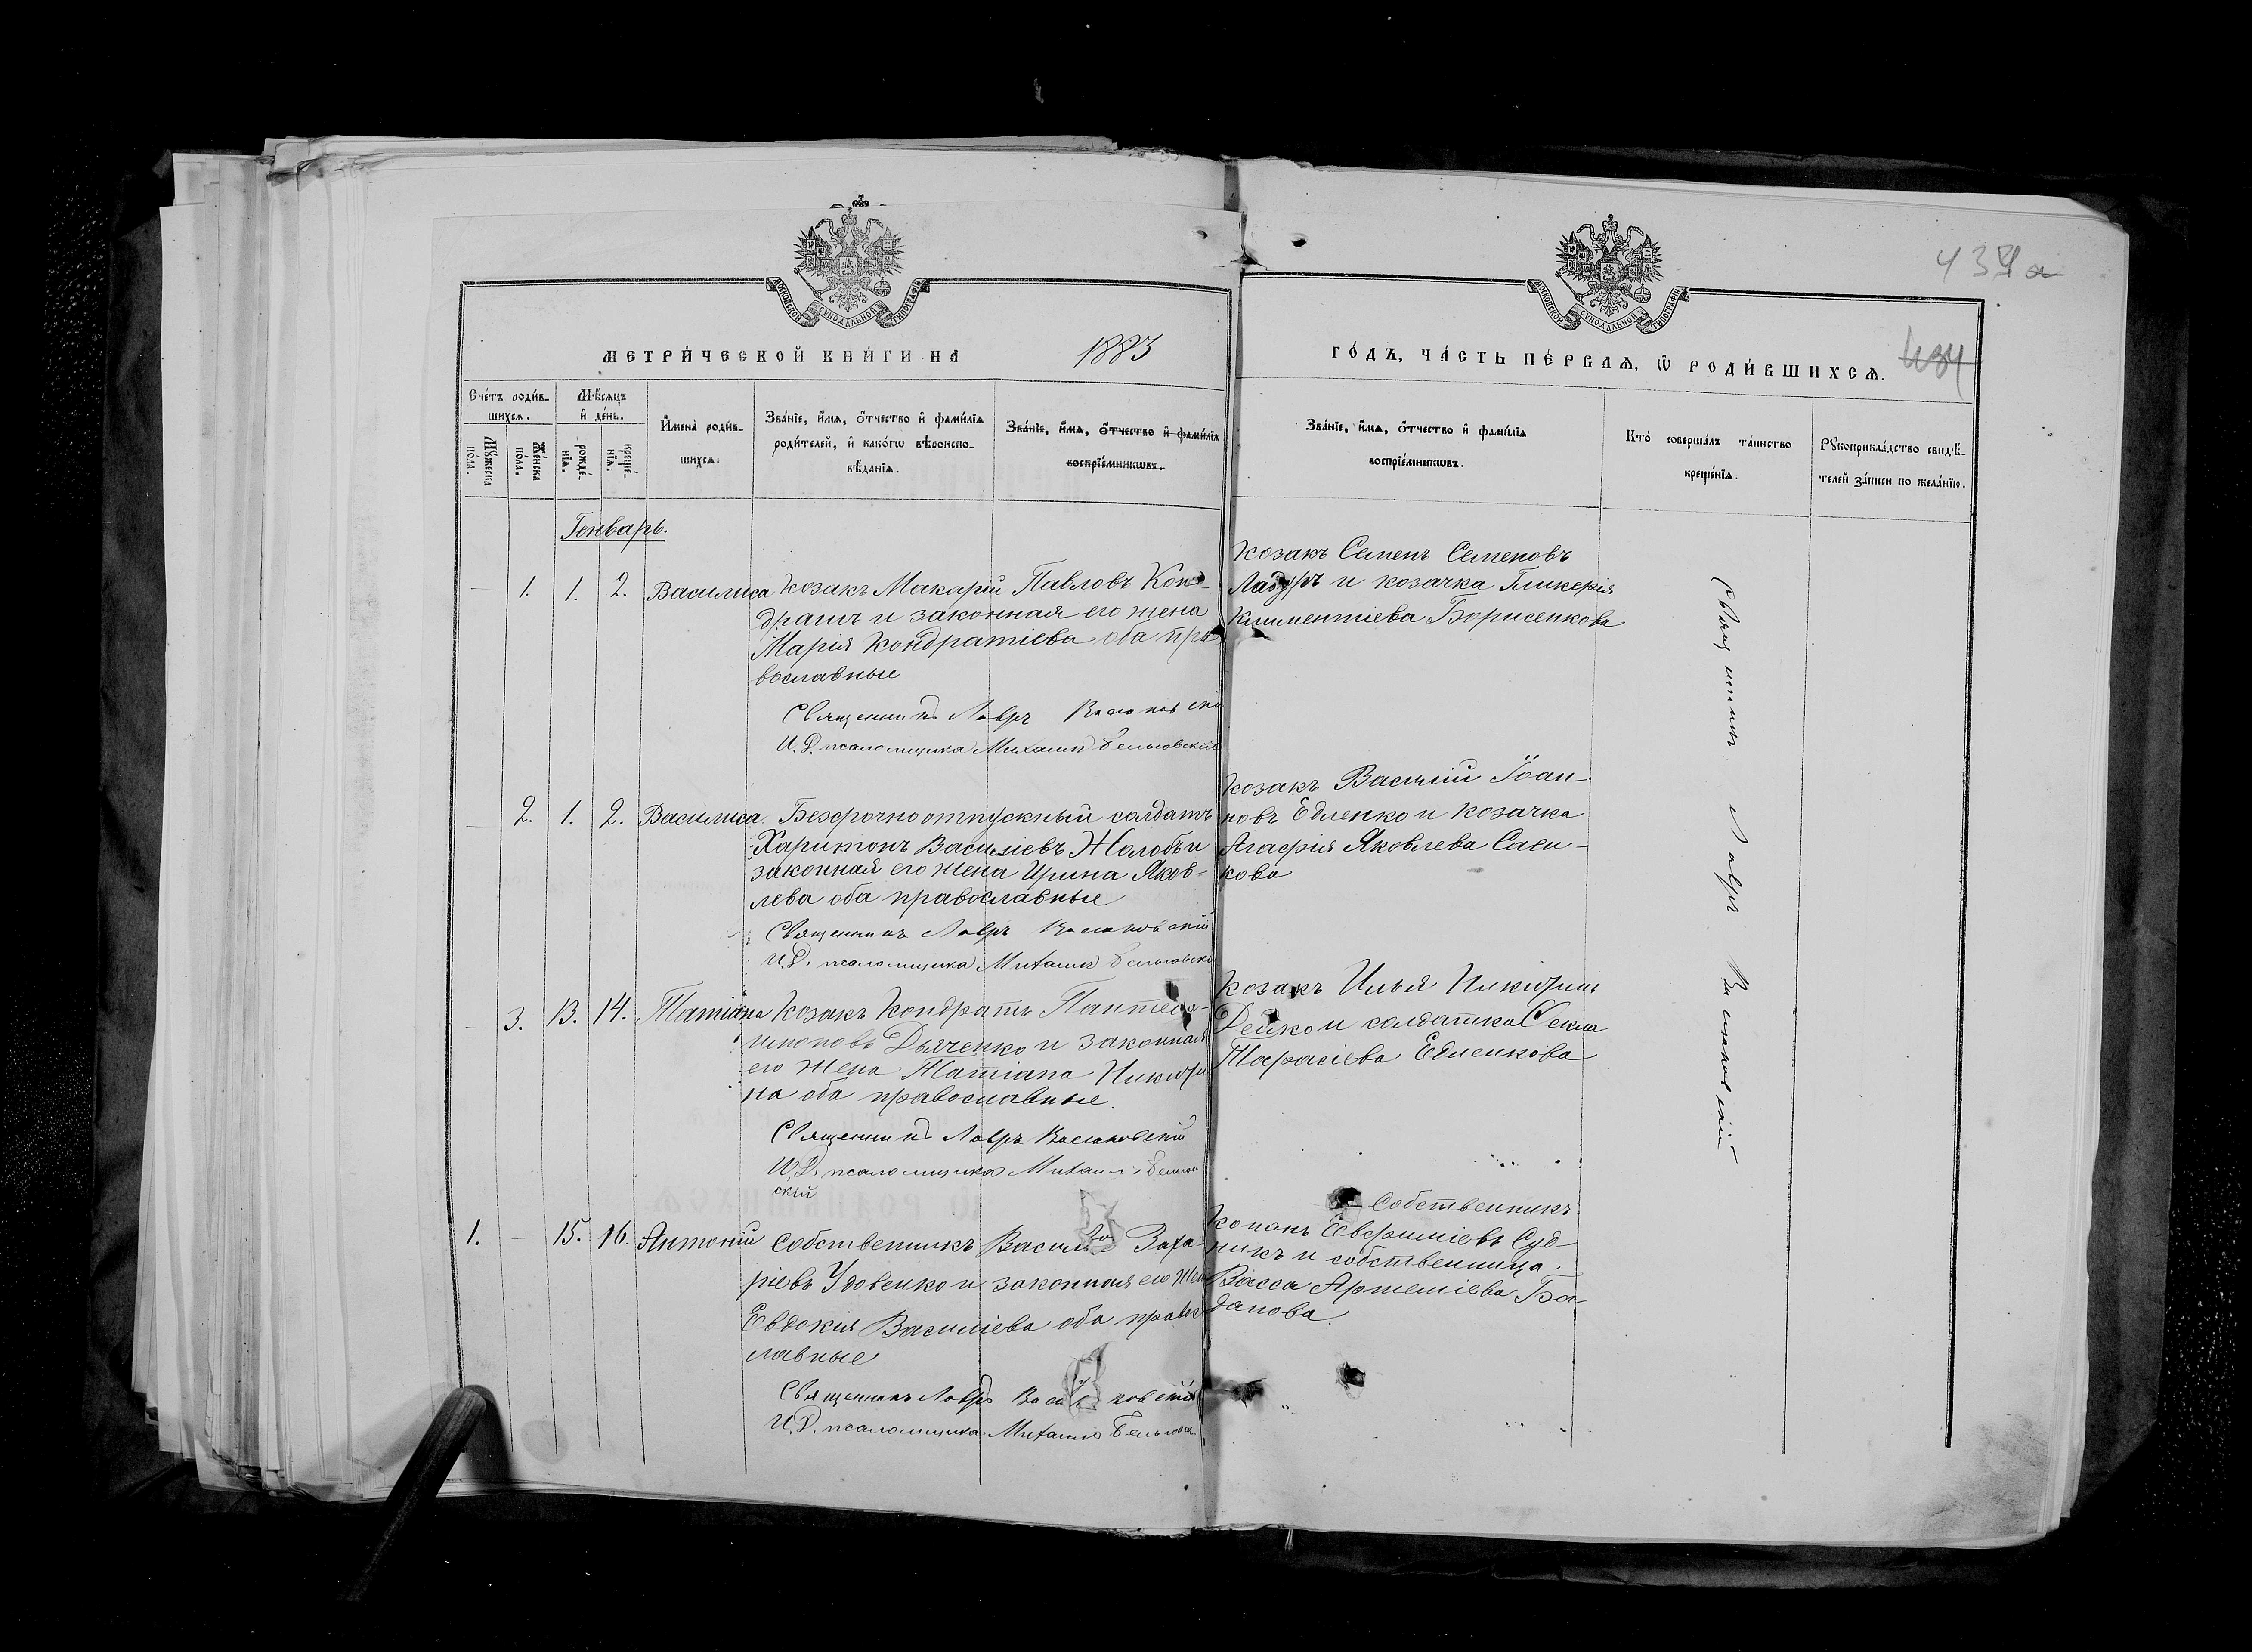 439 а
МЕТРИ́ЧЕСКОЙ КНИ́ГИ НА 1883
ГО́ДЪ, ЧА́СТЬ ПЕ́РВАЯ, Ѡ҆ РОДИ́ВШИХСЯ.
Счетъ роди́в-
шихся.
Мꙋ́жеска по́ла.
Же́нска по́ла.
Мѣ́сяцъ
и҆ де́нь.
рожде́-
нїя.
креще́-
нїя.
И҆мена̀ роди́в-
шихся.
Зва́нїе, и҆́мя, о҆́тчество и҆ фами́лїя
роди́телей, и҆ како́гѡ вѣроиспо-
вѣ́данїя.
Зва́нїе, и҆́мя, о҆́тчество и҆ фами́лїя
воспрїе́мникѡвъ.
Зва́нїе, и҆́мя, о҆́тчество и҆ фами́лїя
воспрїе́мникѡвъ.
Кто̀ соверша́лъ та́инство
креще́нїя.
Рꙋкоприкла́дство свидѣ́-
телей за́писи по жела́нїю.
Генварь.
1. 1. 2. Василиса
Козакъ Макарій Павловъ Кон-
драшъ и законная его жена
Марія Кондратіева оба пра-
вославные
Священникъ Лавръ
И. Д. псаломщика Михаилъ
Козакъ Семенъ Семеновъ
и козачка Гликерія
Климентіева Борисенкова
2. 1. 2. Василиса.
Безсрочноотпускный солдатъ
Харитонъ Василіевъ Жолобъ и
законная его жена Ирина Яков-
лева оба православные
Священникъ Лавръ
И. Д. псаломщика Михаилъ
Козакъ Василій Іоан-
новъ Едленко и козачка
Агафія Яковлева Саен-
кова
3. 13. 14. Татіана
Козакъ Кондратъ Пантеле-
имоновъ Дьяченко и законная
его жена Татіана Никифо-
на оба православные.
Священникъ Лавръ
И. Д. псаломщика Михаилъ
скій
Козакъ Илья Никифоровъ
Дейко и солдатка Фекла
Тарасіева Едленкова
1. 15. 16. Антоній
Собственникъ Василій Заха-
ріевъ Удовенко и законная его жена
Евдокія Василіева оба право-
славные
Священникъ Лавръ
И. Д. псаломщика Михаилъ
Собственникъ
Конанъ Евфиміевъ Суд-
никъ и собственница
Васса Артеміева Ба-
данова.
Священникъ Лавръ